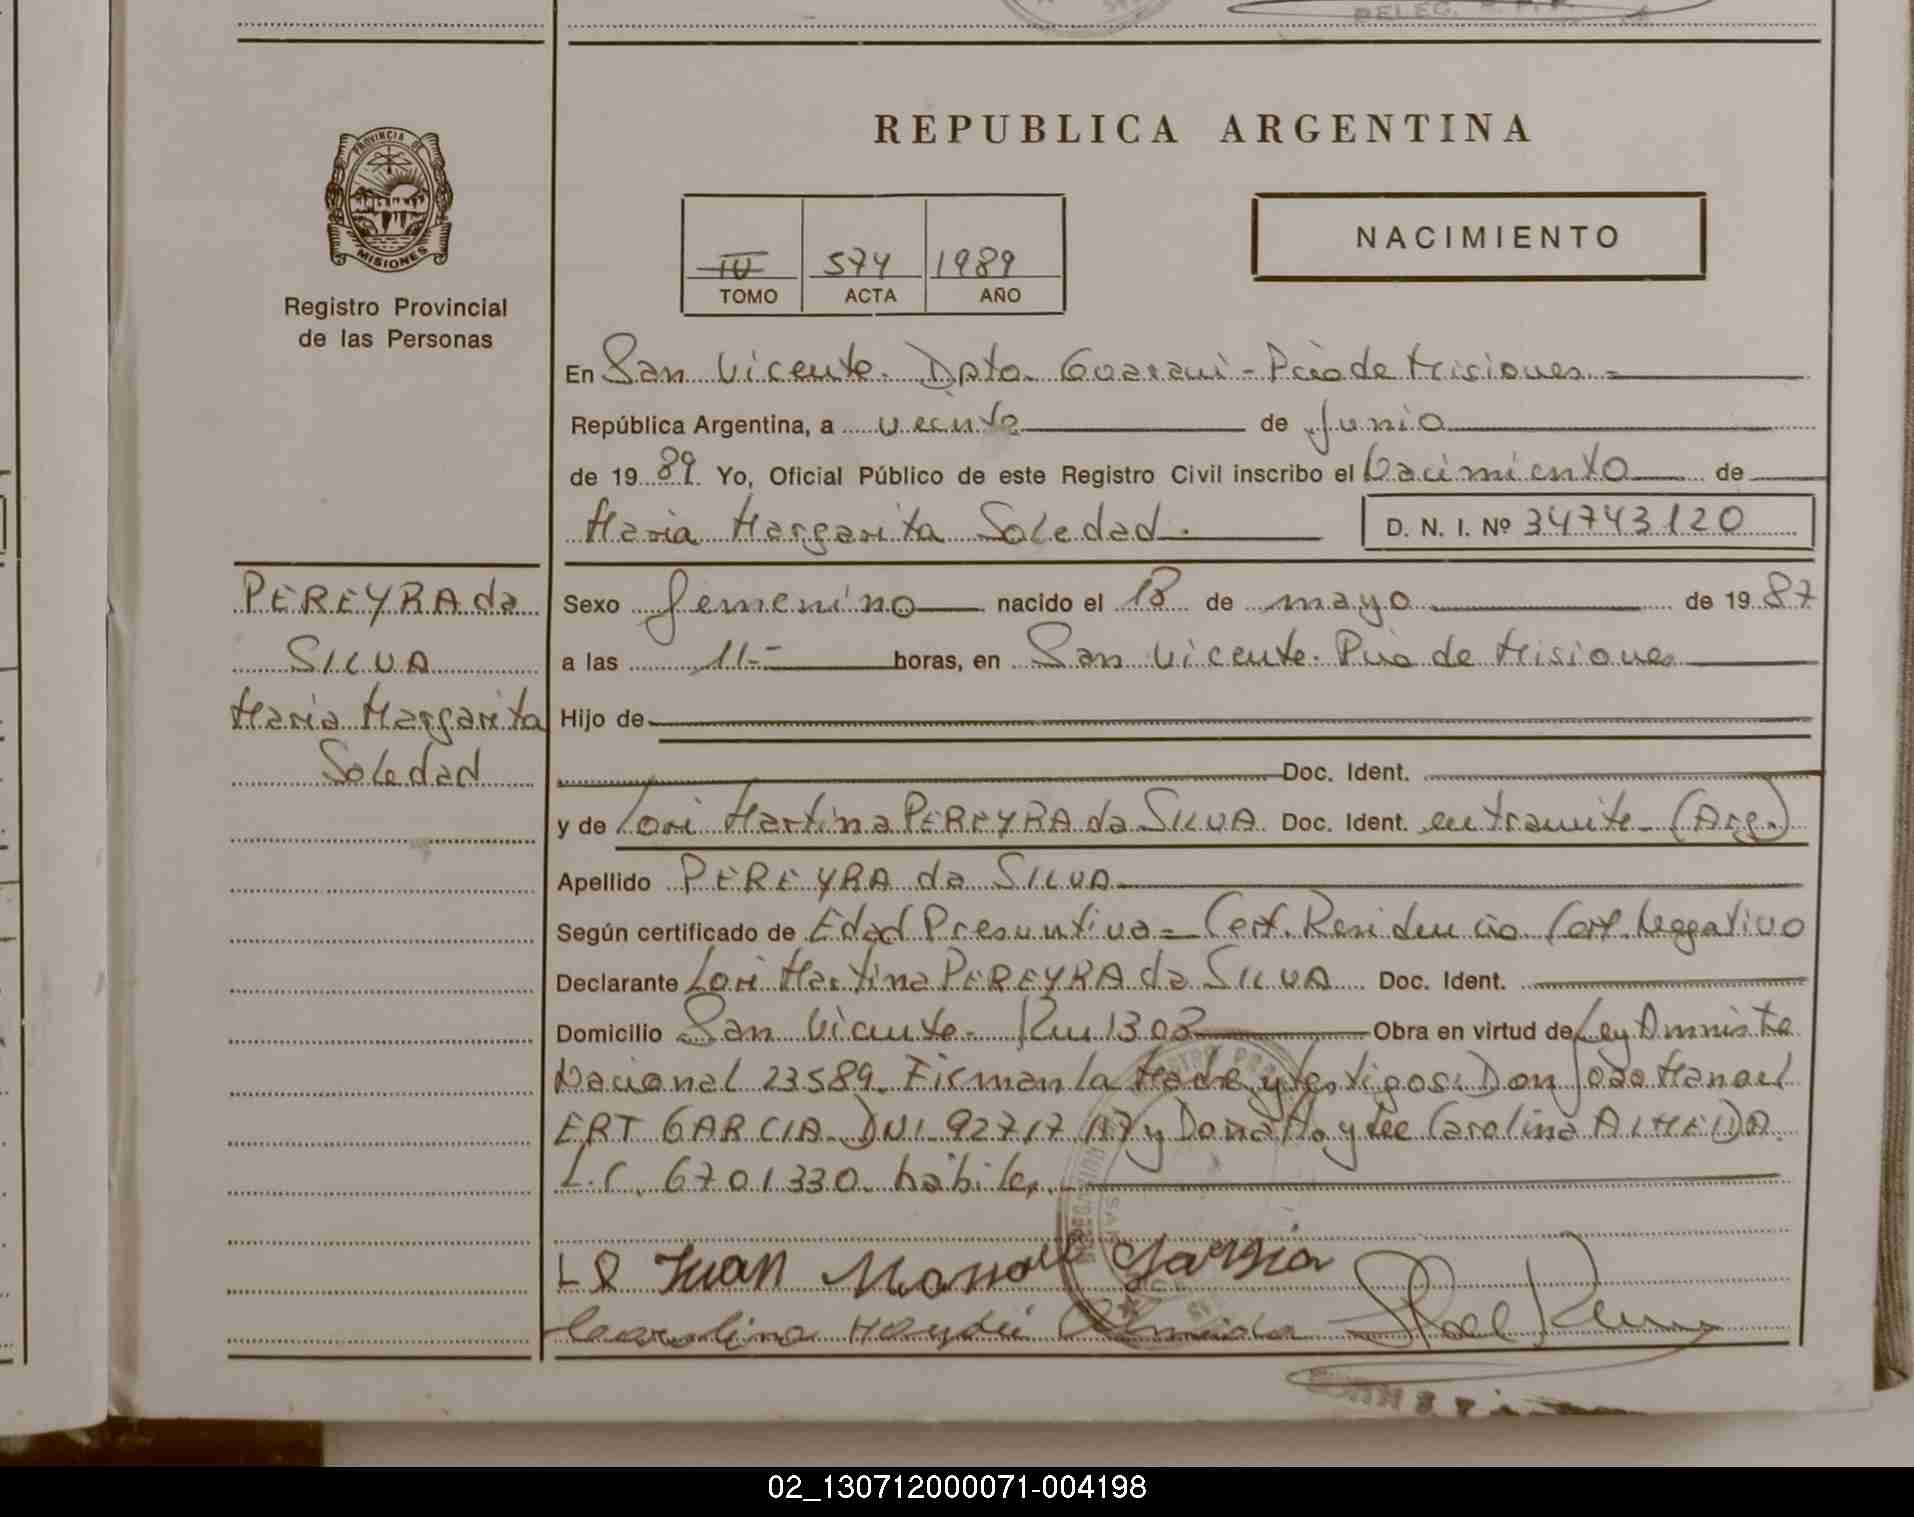 DELEG. R. P. P.
PROVINCIA DE
MISIONES
Registro Provincial
de las Personas
REPUBLICA ARGENTINA
NACIMIENTO
IV 574 1989
TOMO ACTA AÑO
En San Vicente. Dpto. Guarani - Pcia de Misiones.-
República Argentina, a veinte de Junio
de 1989. Yo, Oficial Público de este Registro Civil inscribo el Nacimiento de
Maria Margarita Soledad. D. N. I. Nº 34743120
PEREYRA da
SILVA
Maria Margarita
Soledad
Sexo femenino nacido el 18 de mayo de 1987
a las 11.- horas, en San Vicente. Pcia de Misiones
Hijo de
Doc. Ident.
y de Lori Martina PEREYRA da SILVA Doc. Ident. en tramite - (Arg.)
Apellido PEREYRA da SILVA.
Según certificado de Edad Presuntiva - Cert. Residencia Cert. Neggativo
Declarante Lori Martina PEREYRA da SILVA Doc. Ident.
Domicilio San Vicente - Km 1303 Obra en virtud de Ley Amnistia
Nacional 23589. Firman la Madre y testigos: Don Joao Manoel
ERT GARCIA. DNI. 92717 117 y Doña Haydee Carolina ALMEIDA.
L.C. 6701330. habiles.
L R Juan Manoel Garsia
Carolina Haydée Almeida
02_130712000071-004198